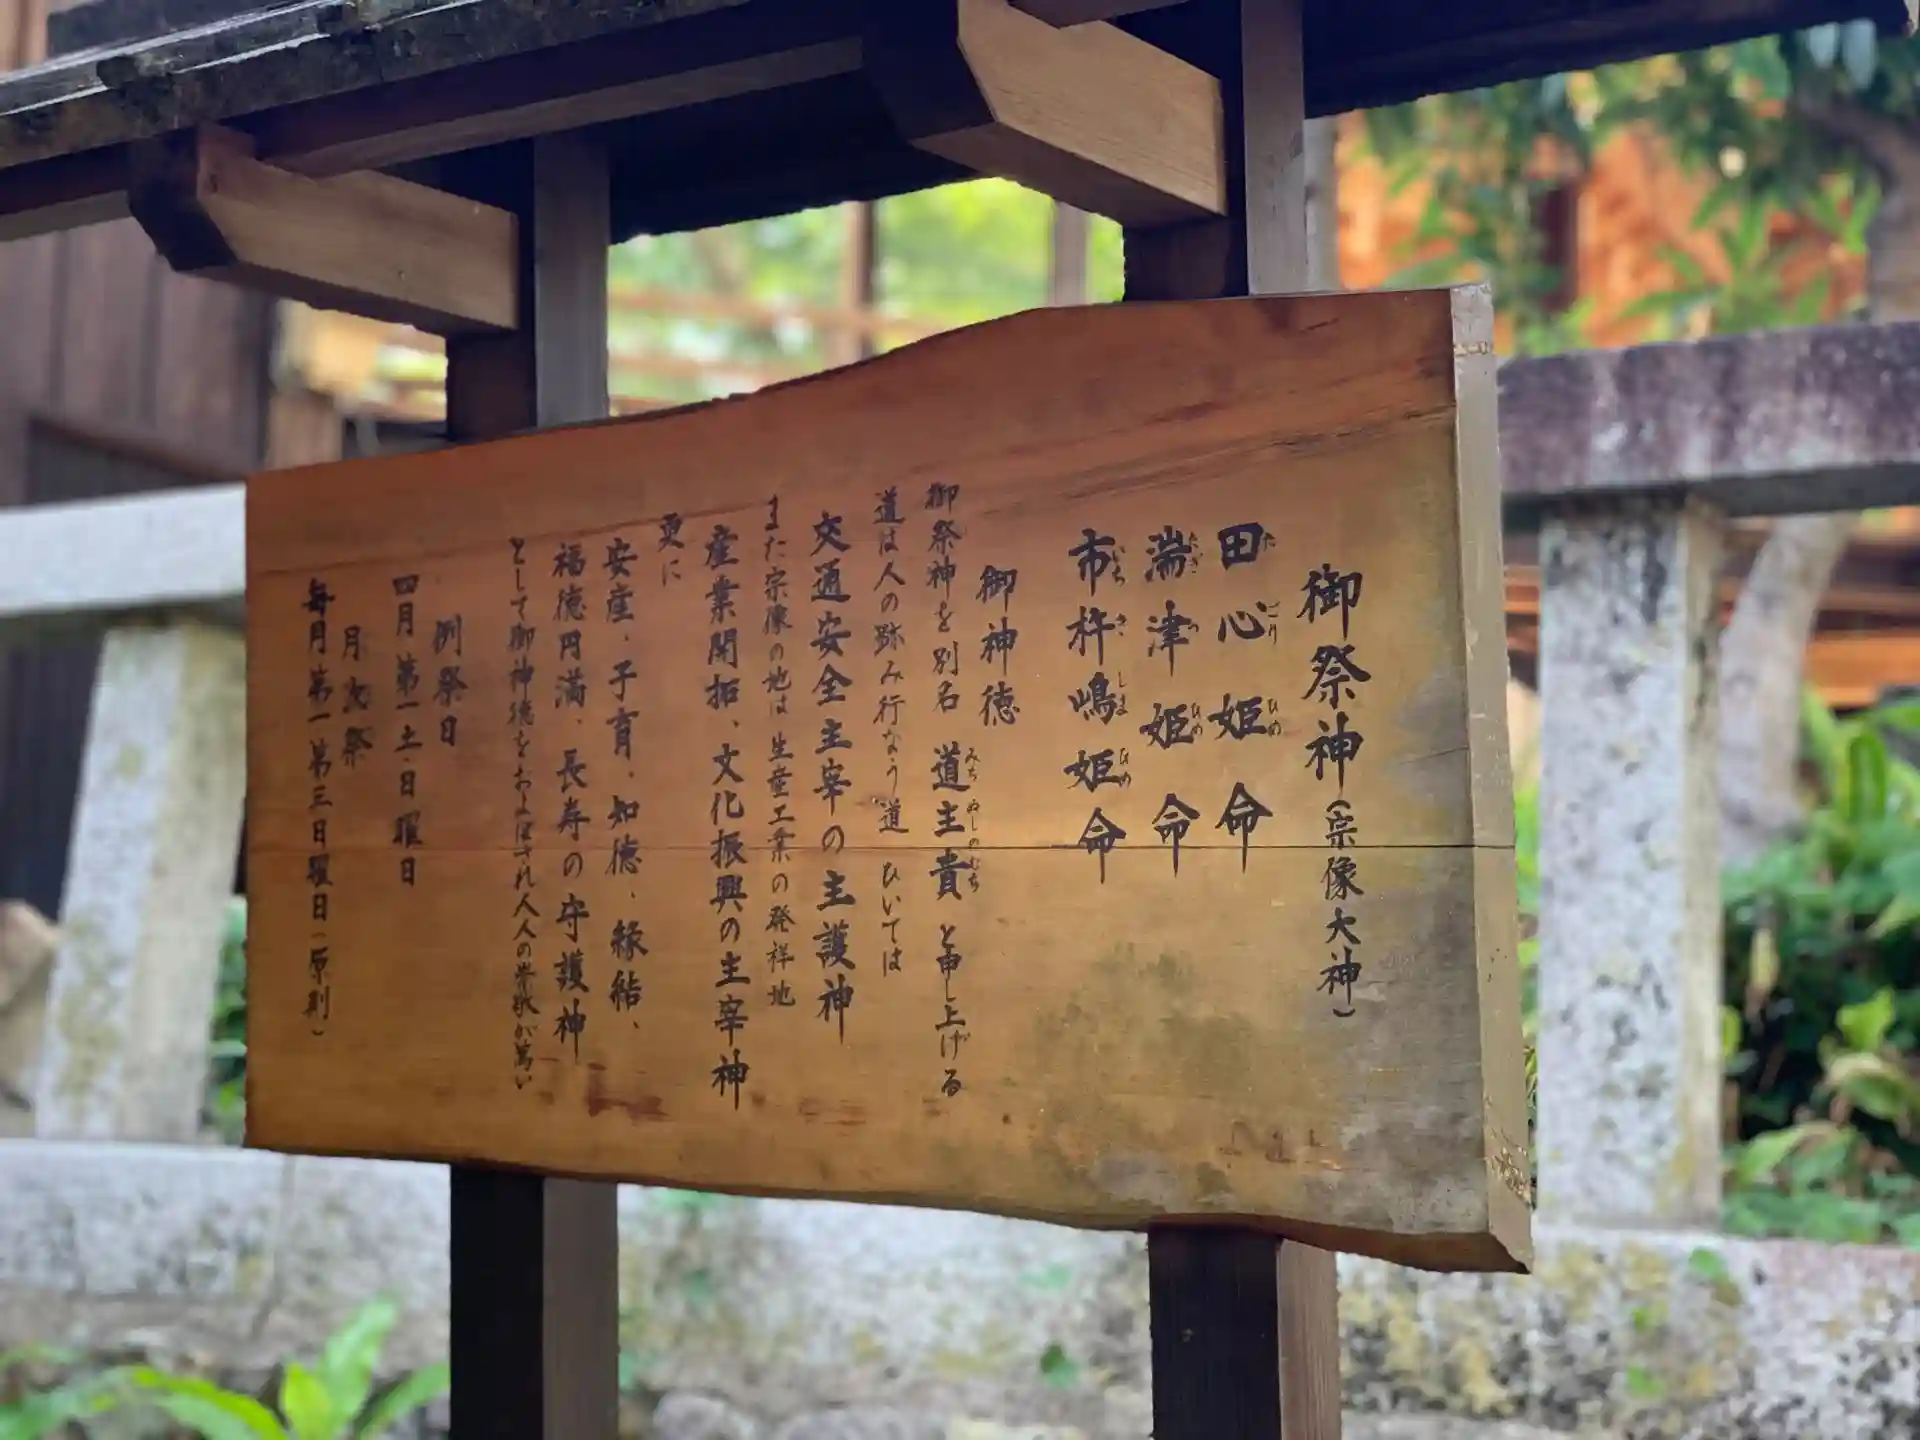 御祭神（宗像大神）
田心姫命
湍津姫命
市杵嶋姫命
御神徳
御祭神を別名 道主貴と申し上げる
道は人の跡み行なう道 ひいては
交通安全主宰の主護神
また宗像の地は生産工業の発祥地
産業開拓、文化振興の主宰神
更に
安産、子育、知徳、縁結、
福徳円満、長寿の守護神
として御神徳をおよぼされ人人の崇敬が篤い
例祭日
四月第一土・日曜日
月次祭
毎月第一第三日曜日（原則）